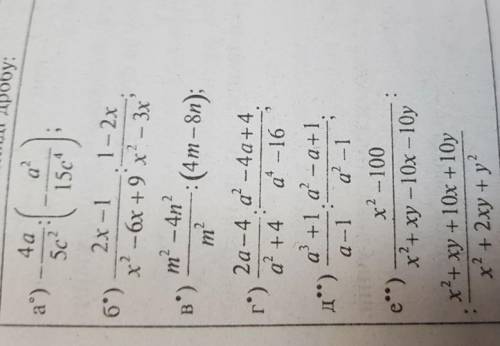 дробу:
а°) -4a/5c² : (-a²/15c⁴);
б•) 2x-1/x²-6x+9 : 1-2x/x²-3x;
в•) m²-4n²/m² : (4m-8n);
г•) 2a-4/a²+4 : a²-4a+4/a⁴-16;
д••) a³+1/a-1 : a²-a+1/a²-1;
е••) x²-100/x²+xy-10x-10y :
: x²+xy+10x+10y/x²+2xy+y²